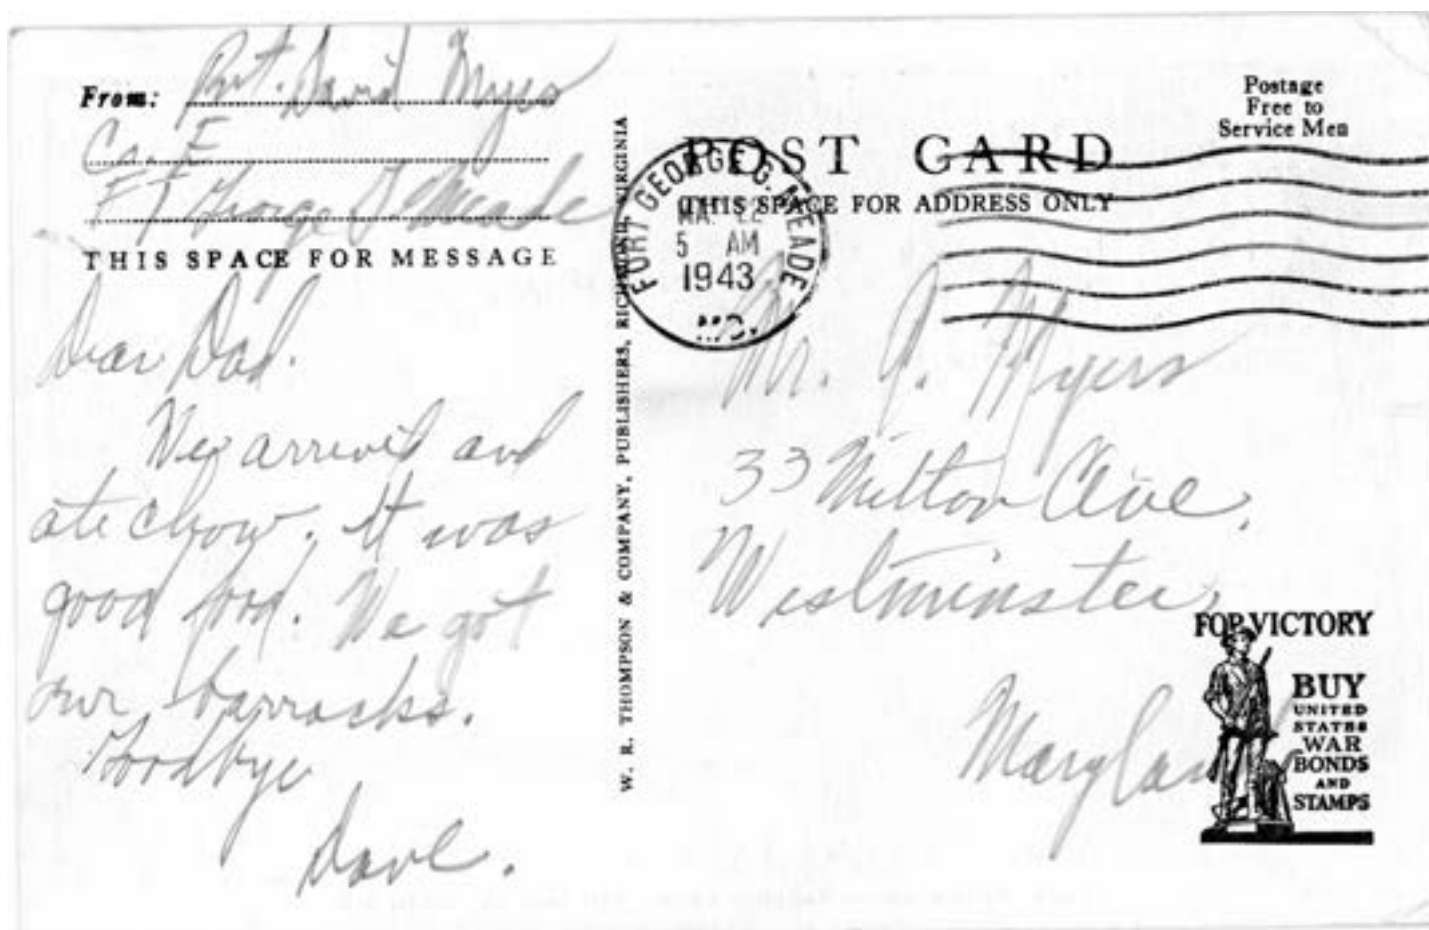 From: Pvt. David Myers
Co. E
Ft George G Meade
THIS SPACE FOR MESSAGE
Dear Dad.
We arrived and
ate chow. It was
good food. We got
our barracks.
Goodbye
Dave.
W. R. THOMPSON & COMPANY, PUBLISHERS, RICHMOND, VIRGINIA
Postage
Free to
Service Men
POST CARD
THIS SPACE FOR ADDRESS ONLY
FORT GEORGE G. MEADE
22
5 AM
1943
MD.
Mr. J. Myers
33 Milton Ave.
Westminster,
Maryland
FOR VICTORY
BUY
UNITED
STATES
WAR
BONDS
AND
STAMPS